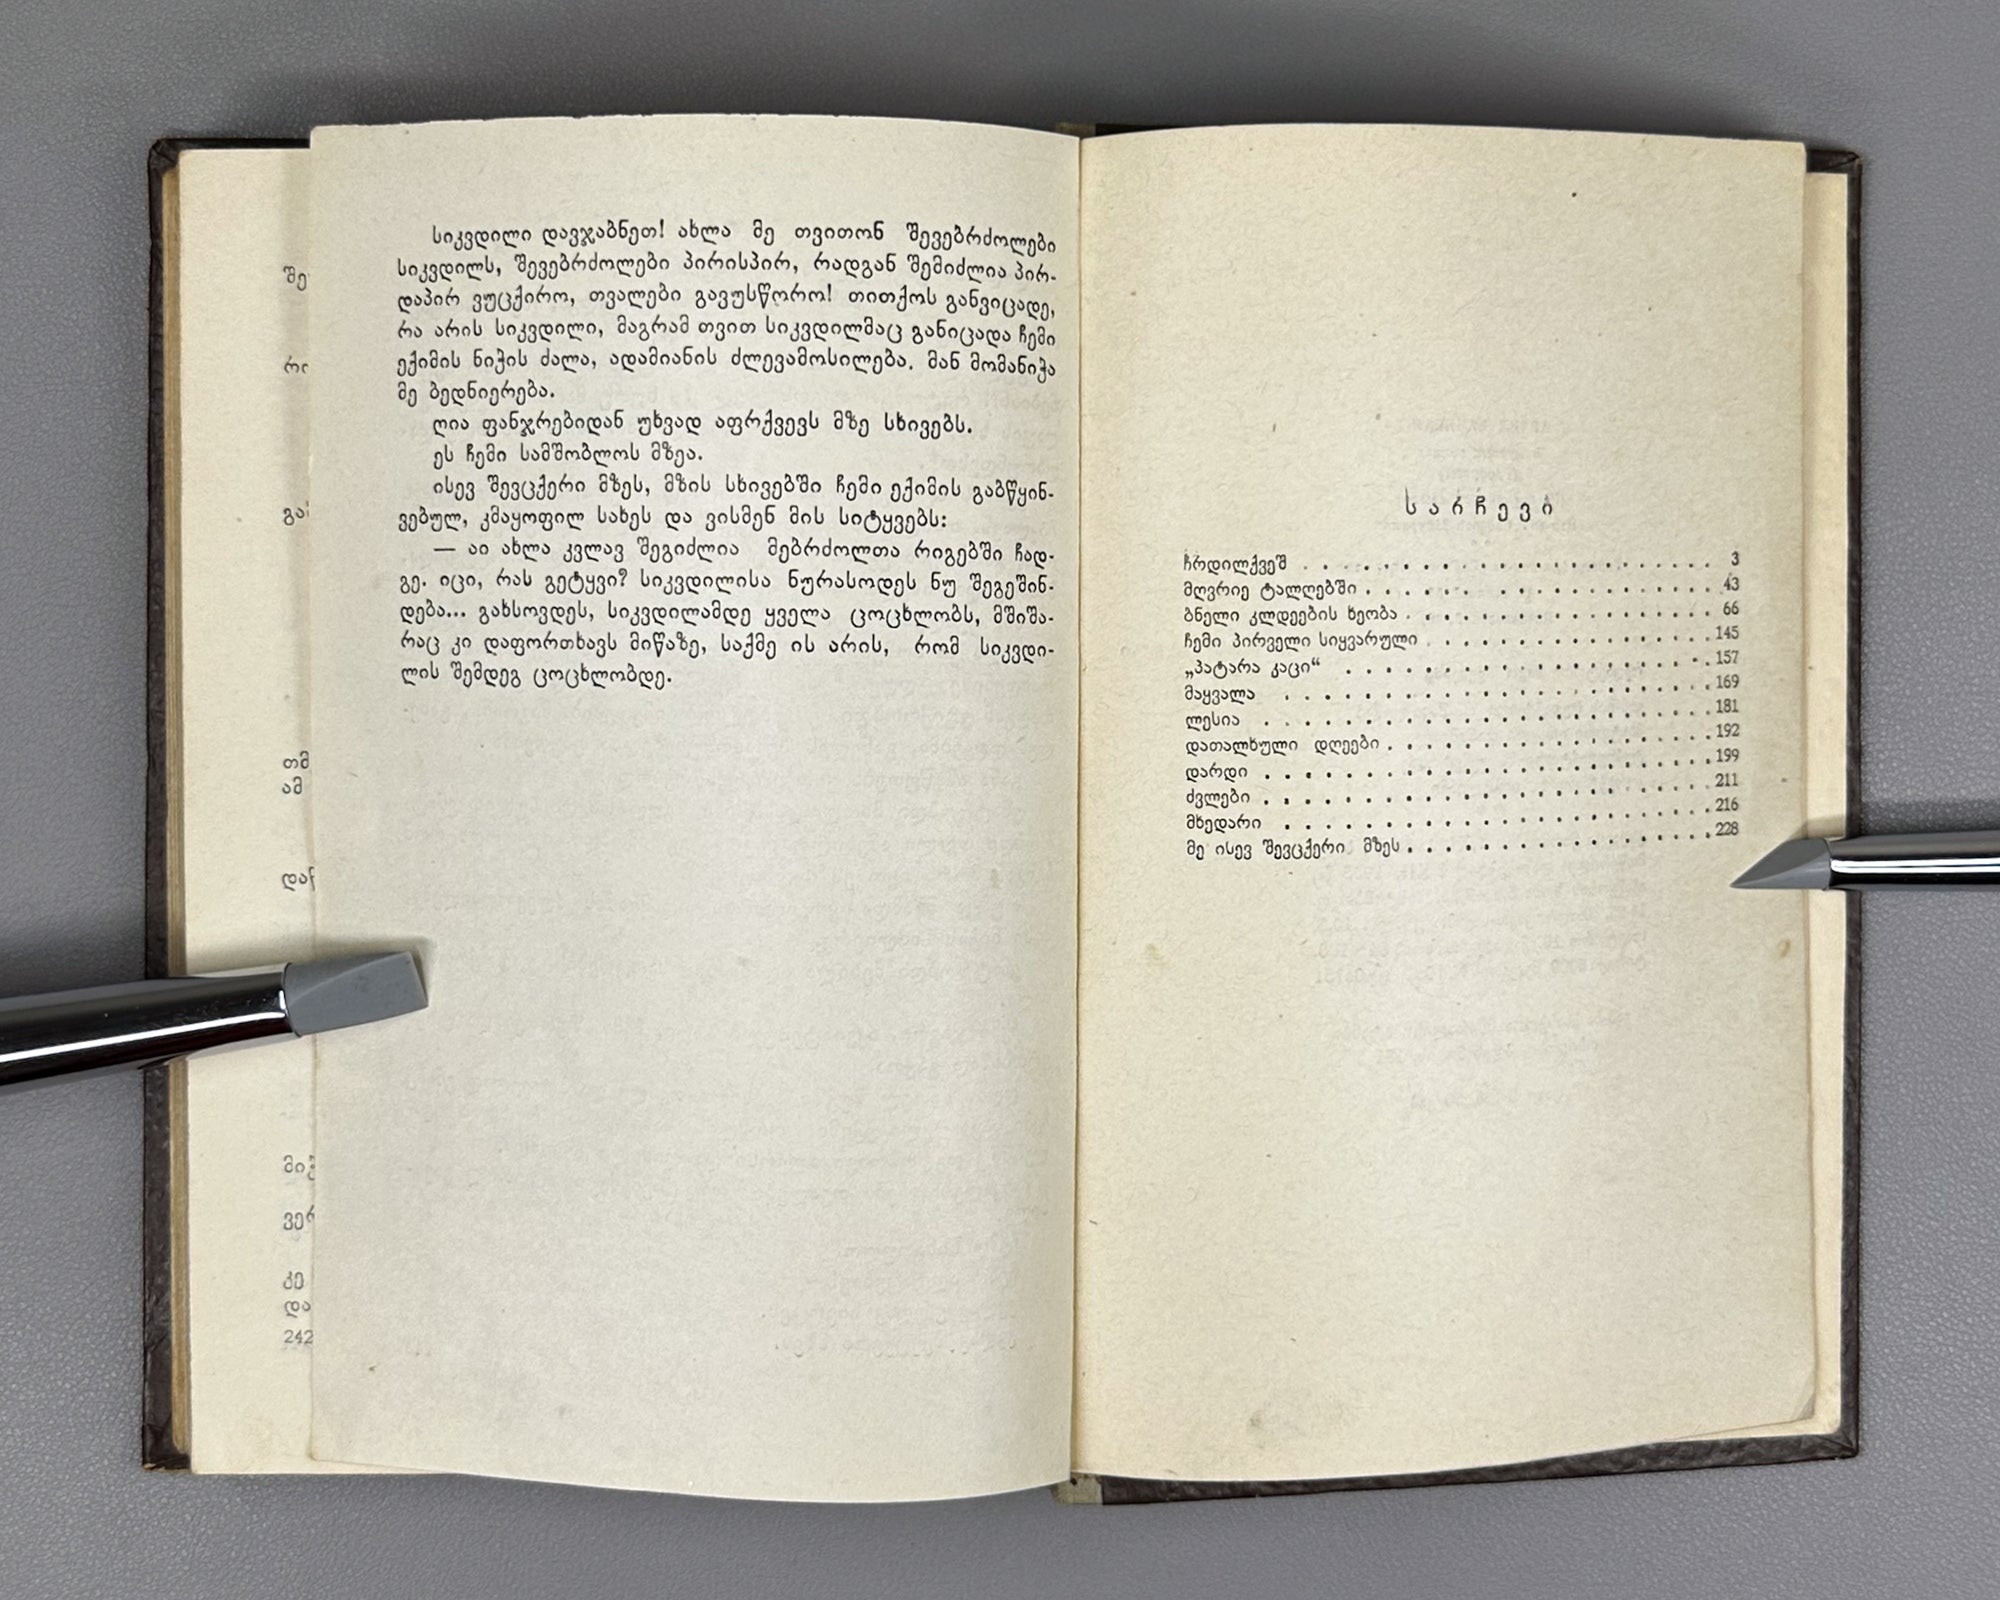 სიკვდილი დავჯაბნეთ! ახლა მე თვითონ შევებრძოლები
სიკვდილს, შევებრძოლები პირისპირ, რადგან შემიძლია პირ-
დაპირ ვუცქირო, თვალები გავუსწორო! თითქოს განვიცადე,
რა არის სიკვდილი, მაგრამ თვით სიკვდილმაც განიცადა ჩემი
ექიმის ნიჭის ძალა, ადამიანის ძლევამოსილება. მან მომანიჭა
მე ბედნიერება.
ღია ფანჯრებიდან უხვად აფრქვევს მზე სხივებს.
ეს ჩემი სამშობლოს მზეა.
ისევ შევცქერი მზეს, მზის სხივებში ჩემი ექიმის გაბწყინ-
ვებულ, კმაყოფილ სახეს და ვისმენ მის სიტყვებს:
— აი ახლა კვლავ შეგიძლია მებრძოლთა რიგებში ჩად-
გე. იცი, რას გეტყვი? სიკვდილისა ნურასოდეს ნუ შეგეშინ-
დება... გახსოვდეს, სიკვდილამდე ყველა ცოცხლობს, მშიშა-
რაც კი დაფორთხავს მიწაზე, საქმე ის არის, რომ სიკვდი-
ლის შემდეგ ცოცხლობდე.
შე
გა
თმ
ამ
ვერ
კე
და
242
სარჩევი
ჩრდილქვეშ . . . . . . . . . . . . . . . . . . . . 3
მღვრიე ტალღებში . . . . . . . . . . . . . . . . . 43
ბნელი კლდეების ხეობა . . . . . . . . . . . . . . . 66
ჩემი პირველი სიყვარული . . . . . . . . . . . . . . 145
„პატარა კაცი“ . . . . . . . . . . . . . . . . . . 157
მაყვალა . . . . . . . . . . . . . . . . . . . . . 169
ლესია . . . . . . . . . . . . . . . . . . . . . . 181
დათალხული დღეები . . . . . . . . . . . . . . . . 192
დარდი . . . . . . . . . . . . . . . . . . . . . . 199
ძვლები . . . . . . . . . . . . . . . . . . . . . . 211
მხედარი . . . . . . . . . . . . . . . . . . . . . 216
მე ისევ შევცქერი მზეს . . . . . . . . . . . . . . . 228